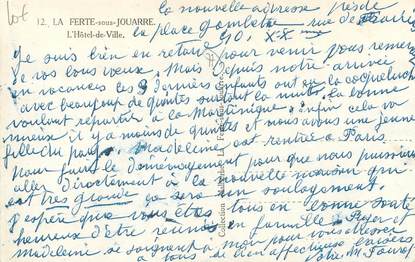 la nouvelle adresse près de
la place Gambetta rue de
90, XX ème
lot
12. LA FERTE-sous-JOUARRE.
L'Hôtel-de-Ville.
Je suis bien en retard pour venir vous remer
de vos bons vœux, Mais depuis notre arrivée
en vacances les 3 derniers enfants ont eu la coqueluche
avec beaucoup de quintes surtout la nuit, la bonne
voulant repartir à la Martinique. enfin cela va
mieux il y a moins de quintes et nous avons une jeune
fille du pays. Madeleine est rentrée à Paris
pour faire le déménagement pour que nous puissions
aller directement à la nouvelle maison qui
est très grande ça sera un soulagement.
J'espère que vous êtes tous en bonne santé
heureux d'être réunis en famille
Madeleine se joignant à moi pour vous adresser
tous de bien affectueux baisers
votre M.
Collection